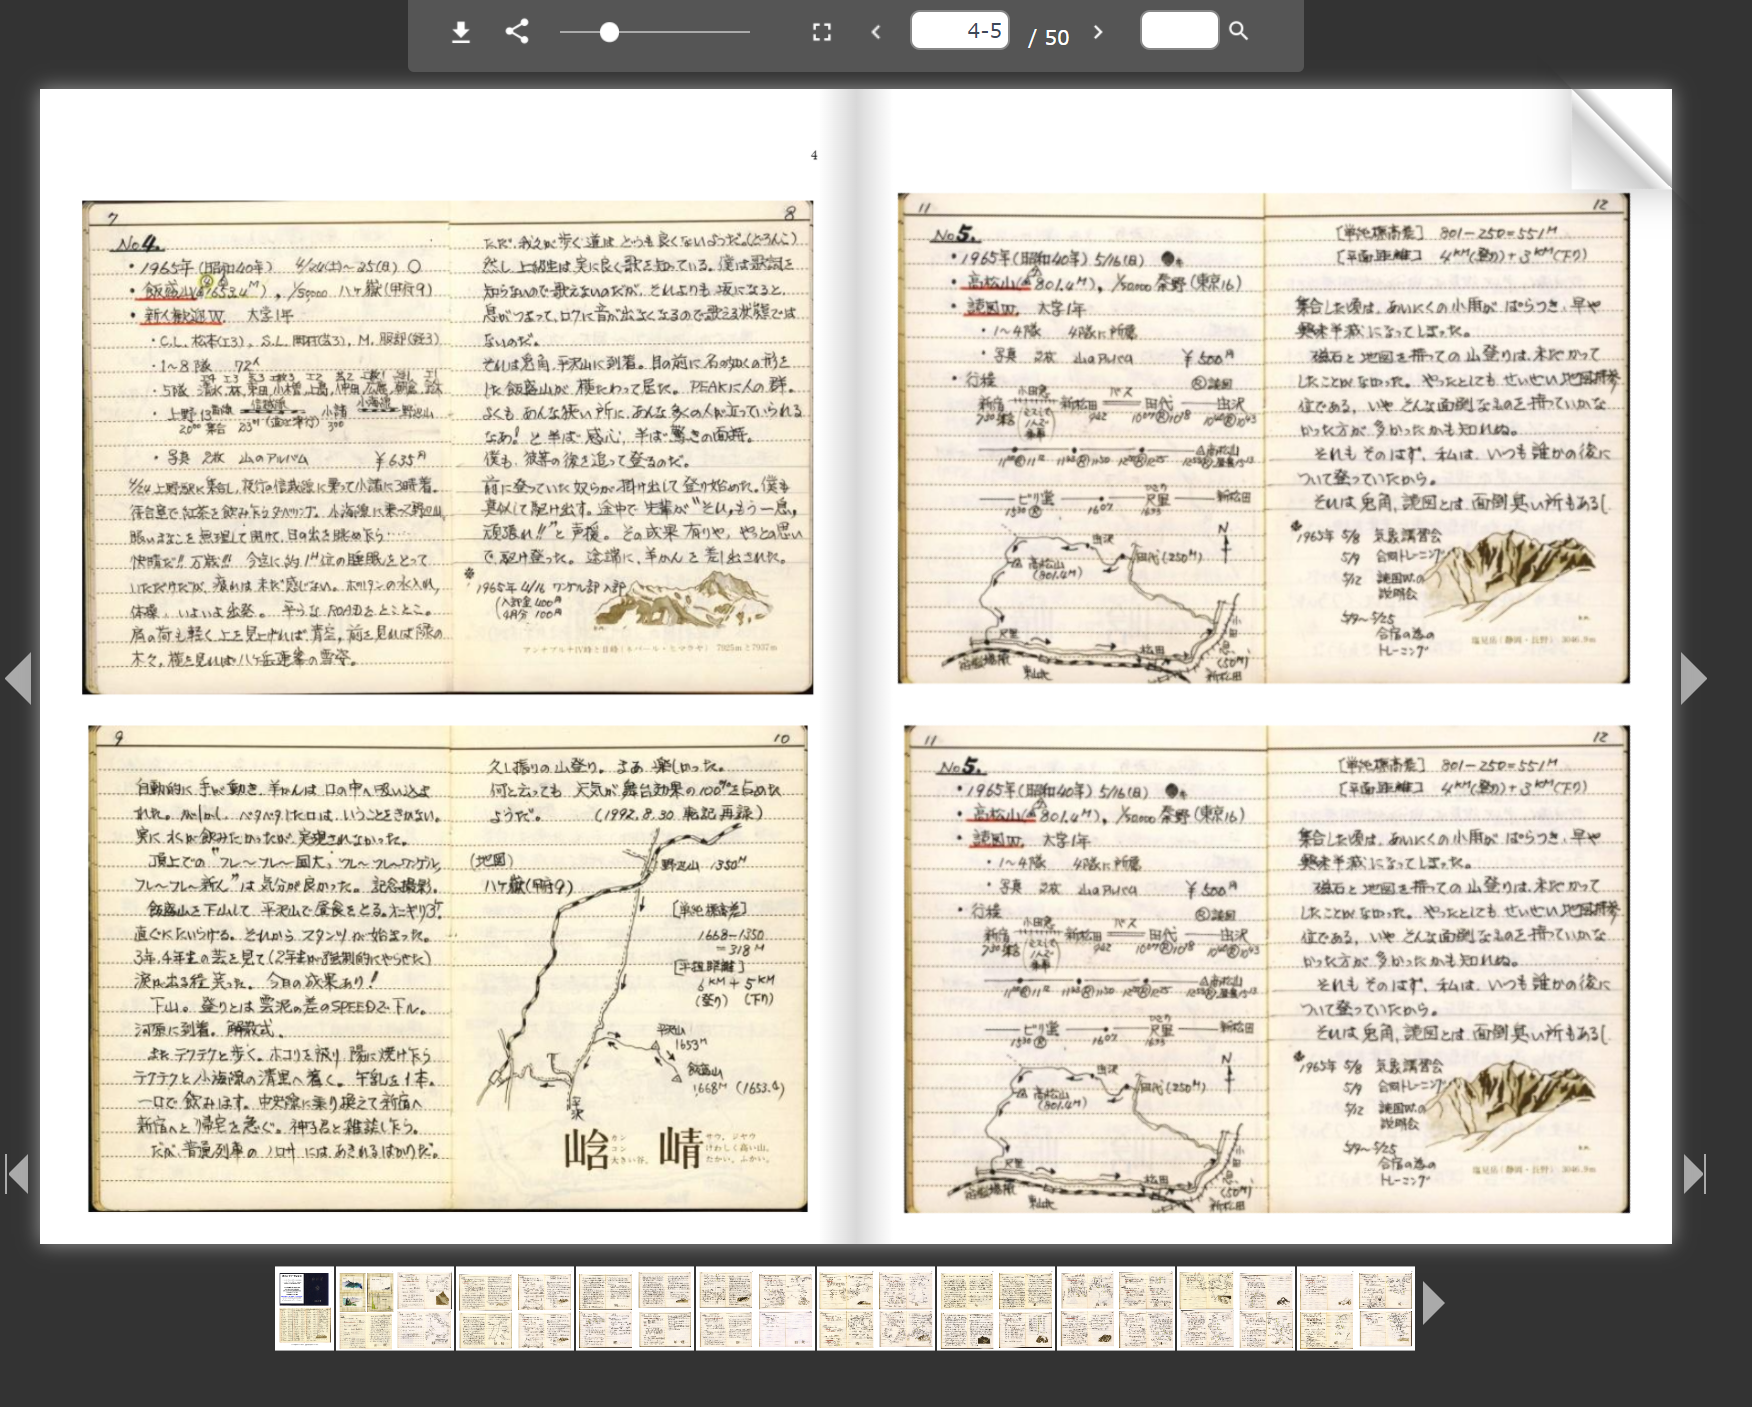 4-5 / 50
4
7
No 4.
・1965年(昭和40年) 4/24(土)〜25(日) ○
・飯盛山(1653.4M), 1/50000 八ヶ嶽(甲府9)
・新人歓迎W. 大学1年
・1〜8隊 72人
・写真 2枚 山のアルバム ¥635円
4/24 上野駅に集合し、夜行の信越線に乗って小諸に3時着。
待合室で紅茶を飲み乍らダベリング。小海線に乗って野辺山
眠いまなこを無理して開けて、目の出を眺め乍ら……
快晴だ!! 万歳!! 今迄に約1H位の睡眠をとって
いただけだが、疲れは未だ感じない。ポリタンの水入れ、
体操、いよいよ出発。平らなROADをとことこ。
肩の荷も軽く上を見上げれば青空、前を見れば緑の
木々、横を見れば八ヶ岳連峯の雪姿。
8
ただ、我々が歩く道はとっても良くないようだ。(どろんこ)
然し上級生は実に良く歌を知っている。僕は歌詞を
知らないので歌えないのだが、それよりも坂になると、
息がつまって、口クに音が出なくなるので歌える状態では
ないのだ。
それは兎角、平沢山に到着。目の前に名の如くの形を
した飯盛山が横たわって居た。PEAKに人の群。
よくも、あんな狭い所に、あんな多くの人が立っていられる
なあ! と半ば感心、半ば驚きの面持。
僕も、彼等の後を追って登るのだ。
前に登っていた奴らが掛け出して登り始めた。僕も
真似して駆け出す。途中で先輩が"それ、もう一息,
頑張れ!!"と声援。その成果有りや、やっとの思い
で、駆け登った。途端に、羊かんを差し出された。
1965年 4/16 ワンゲル部入部
(入部金 400円
4月分 100円
アンナプルナIV峰とII峰(ネパール・ヒマラヤ) 7925mと7937m
9
自動的に手が動き、羊かんは口の中へ吸い込ま
れた。が、しかし、ベタベタした口は、いうことをきかない。
実に水が飲みたかったが実現されなかった。
頂上での"フレ〜フレ〜国大、フレ〜フレ〜ワンゲル,
フレ〜フレ〜新人"は気分が良かった。記念撮影。
飯盛山を下山して平沢山で昼食をとる。オニギリ3ケ.
直ぐにたいらげる。それからスタンツが始まった。
3年,4年生の芸を見て(2年生が強制的にやらせた)
涙が出る程笑った。今日の成果あり!
下山。登りとは雲泥の差のSPEEDで下ル。
河原に到着。解散式.
またテクテクと歩く。ホコリを被り陽に焼け乍ら
テクテクと小海線の清里へ着く。牛乳を1本.
一口で飲みほす。中央線に乗り換えて新宿へ
新宿へと帰宅を急ぐ。神子君と雑談し乍ら.
だが、普通列車のノロサにはあきれるばかりだ。
10
久し振りの山登り。まあ楽しかった。
何と云っても天気が舞台効果の100%を占めた
ようだ。 (1992.8.30 転記再録)
(地図)
八ヶ嶽(甲府9)
野辺山 1350M
[単純標高差]
1668-1350
=318M
[平担距離]
6KM+5KM
(登り) (下り)
平沢山
1653M
飯盛山
1668M (1653.4)
峆 カン コン 大きい谷。
崝 サウ、ジヤウ けわしく高い山。 たかい。ふかい。
11
No 5.
・1965年(昭和40年) 5/16(日)
・高松山(801.4M), 1/50000 秦野(東京16)
・読図W. 大学1年
・1〜4隊 4隊に所属
・写真 2枚 山のアルバム ¥500円
・行程
小田急 バス 読図
新宿 新松田 田代 虫沢
高松山
ビリ堂 尺里 新松田
N
虫沢
田代(250M)
高松山
(801.4M)
尺里
松田
(50M)
新松田
12
[単純標高差] 801-250=551M
[平面距離] 4KM(登り)+3KM(下り)
集合した頃は、あいにくの小雨がぱらつき、早や
興味半減になってしまった。
磁石と地図を持っての山登りは、未だかって
したことがなかった。やったとしても、せいせい地図持参
位である。いやそんな面倒なものを持っていかな
かった方が多かったかも知れぬ。
それもそのはず、私は、いつも誰かの後に
ついて登っていたから。
それは兎角、読図とは面倒臭い所もあるし
1965年 5/8 気象講習会
5/9 合同トレーニング
5/12 読図W.の
説明会
5/19〜5/25
合宿の為の
トレーニング
塩見岳(静岡・長野) 3046.9m
11
No 5.
・1965年(昭和40年) 5/16(日)
・高松山(801.4M), 1/50000 秦野(東京16)
・読図W. 大学1年
・1〜4隊 4隊に所属
・写真 2枚 山のアルバム ¥500円
・行程
小田急 バス 読図
新宿 新松田 田代 虫沢
高松山
ビリ堂 尺里 新松田
N
虫沢
田代(250M)
高松山
(801.4M)
尺里
松田
(50M)
新松田
12
[単純標高差] 801-250=551M
[平面距離] 4KM(登り)+3KM(下り)
集合した頃は、あいにくの小雨がぱらつき、早や
興味半減になってしまった。
磁石と地図を持っての山登りは、未だかって
したことがなかった。やったとしても、せいせい地図持参
位である。いやそんな面倒なものを持っていかな
かった方が多かったかも知れぬ。
それもそのはず、私は、いつも誰かの後に
ついて登っていたから。
それは兎角、読図とは面倒臭い所もあるし
1965年 5/8 気象講習会
5/9 合同トレーニング
5/12 読図W.の
説明会
5/19〜5/25
合宿の為の
トレーニング
塩見岳(静岡・長野) 3046.9m